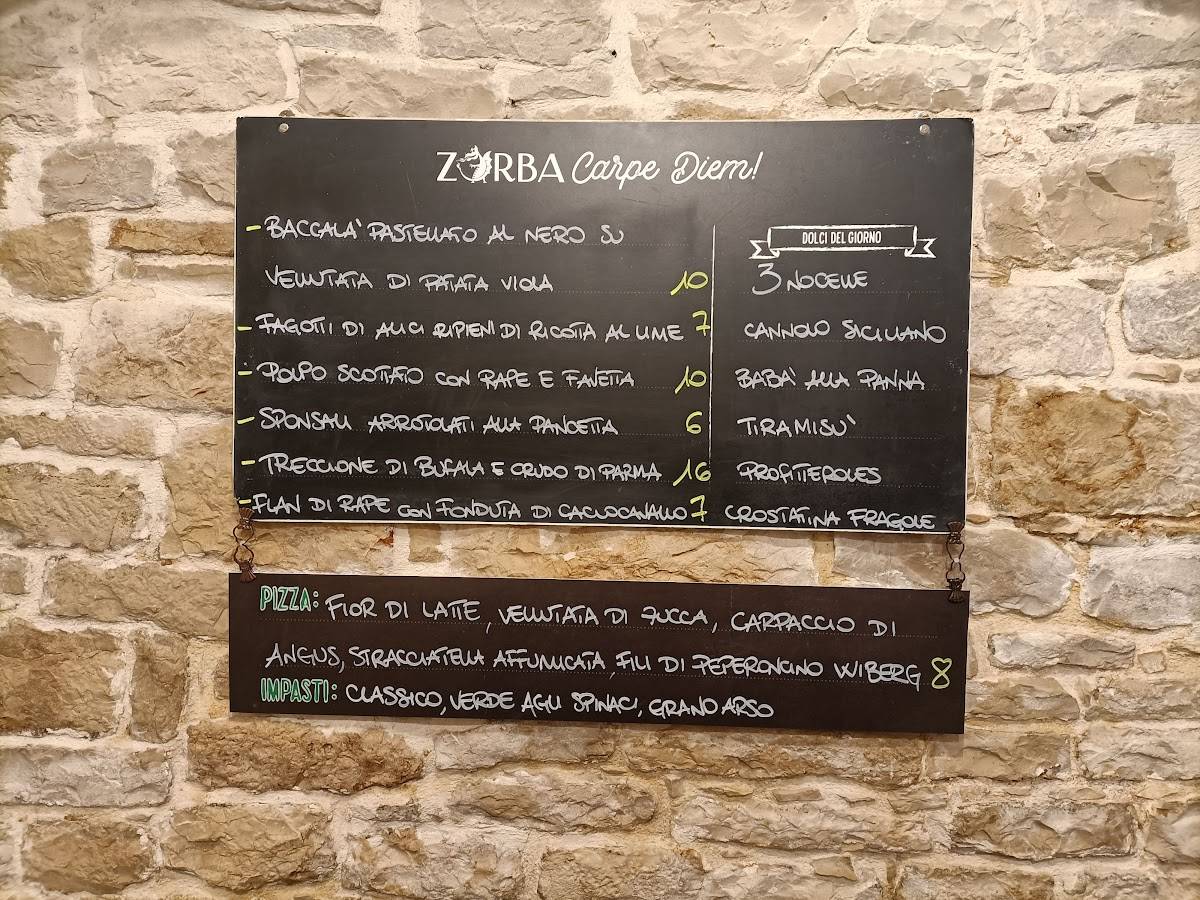 ZORBA Carpe Diem!
- BACCALA' PASTELLATO AL NERO SU
VELLUTATA DI PATATA VIOLA 10
- FAGOTTI DI ALICI RIPIENI DI RICOTTA AL LIME 7
- POLPO SCOTTATO CON RAPE E FAVETTA 10
- SPONSALI ARROTOLATI ALLA PANCETTA 6
- TRECCIONE DI BUFALA E CRUDO DI PARMA 16
- FLAN DI RAPE CON FONDUTA DI CACIOCAVALLO 7
DOLCI DEL GIORNO
3 NOCELLE
CANNOLO SICILIANO
BABA' ALLA PANNA
TIRAMISU'
PROFITEROLES
CROSTATINA FRAGOLE
PIZZA: FIOR DI LATTE, VELLUTATA DI ZUCCA, CARPACCIO DI
ANGUS, STRACCIATELLA AFFUMICATA, FILI DI PEPERONCINO WIBERG 8
IMPASTI: CLASSICO, VERDE AGLI SPINACI, GRANO ARSO